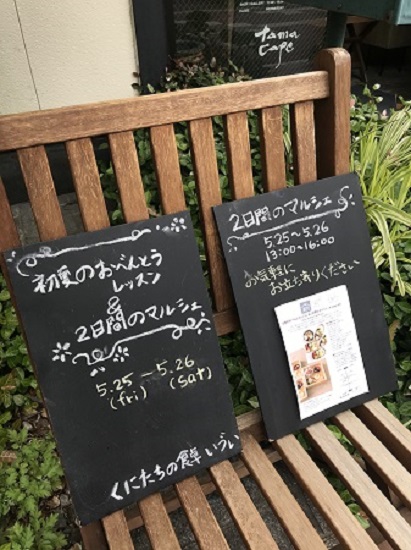 tama
cafe
初夏のおべんとう
レッスン
&
2日間のマルシェ
5.25～5.26
(fri) (sat)
くにたちの食卓いづい
2日間のマルシェ
5.25～5.26
13:00～16:00
お気軽に
お立ち寄りください